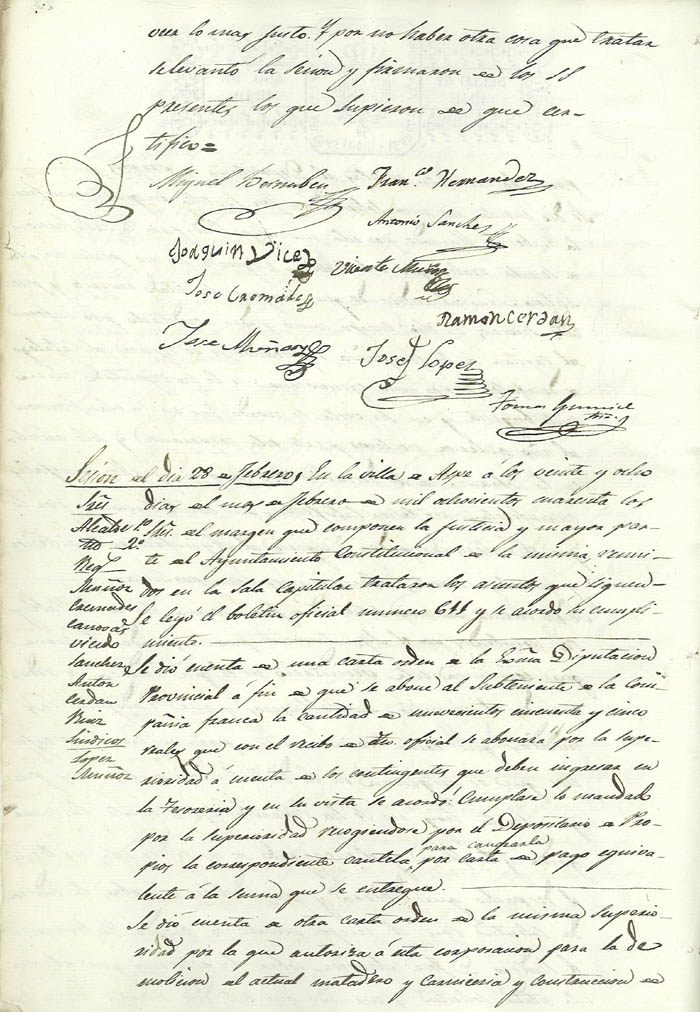 veer lo mas justo. Y por no haber otra cosa que tratar
se levantó la sesion y firmaron de los SS
presentes los que supieron de que cer-
tifico=
Miguel Bernabeu
Franco. Hernandez
Antonio Sanchez
Joaquin Vicedo
Vicente Muñoz
Jose Cremades
Ramon Cerdan
Jose Muñoz
Josef Lopez
Tomas
Sesion del dia 28 de febrero, En la villa de Aspe á los veinte y ocho
Sres dias del mes de febrero de mil ochocientos cuarenta los
Alcalde 1o Sres. del margen que componen la justicia y mayor par-
2o te del Ayuntamiento Constitucional de la misma, reuni-
Regs
Muñoz dos en la Sala Capitular trataron los asuntos que siguen-
Cremades Se leyó el boletin oficial numero 611 y se acordo su cumpli-
Canovas
Vicedo miento.
Sanchez Se dió cuenta de una carta orden de la Exma Diputacion
Anton Provincial á fin de que se abone al Subteniente de la Com-
Cerdan pañia franca la cantidad de nuevecientos cincuenta y cinco
Ruiz
Sindicos reales que con el recibo de dho. oficial se abonará por la supe-
Lopez
Muñoz rioridad á cuenta de los contingentes que deben ingresar en
la Tesoreria y en su vista se acordó: Cumplase lo mandado
por la superioridad recogiendose por el Depositario de Pro-
pios la correspondiente cautela, para cangearla por carta de pago equiva-
lente á la suma que se entregue.
Se dió cuenta de otra carta orden de la misma superio-
ridad por la que autoriza á esta corporacion para la de
molicion del actual matadero y carniceria y construccion de